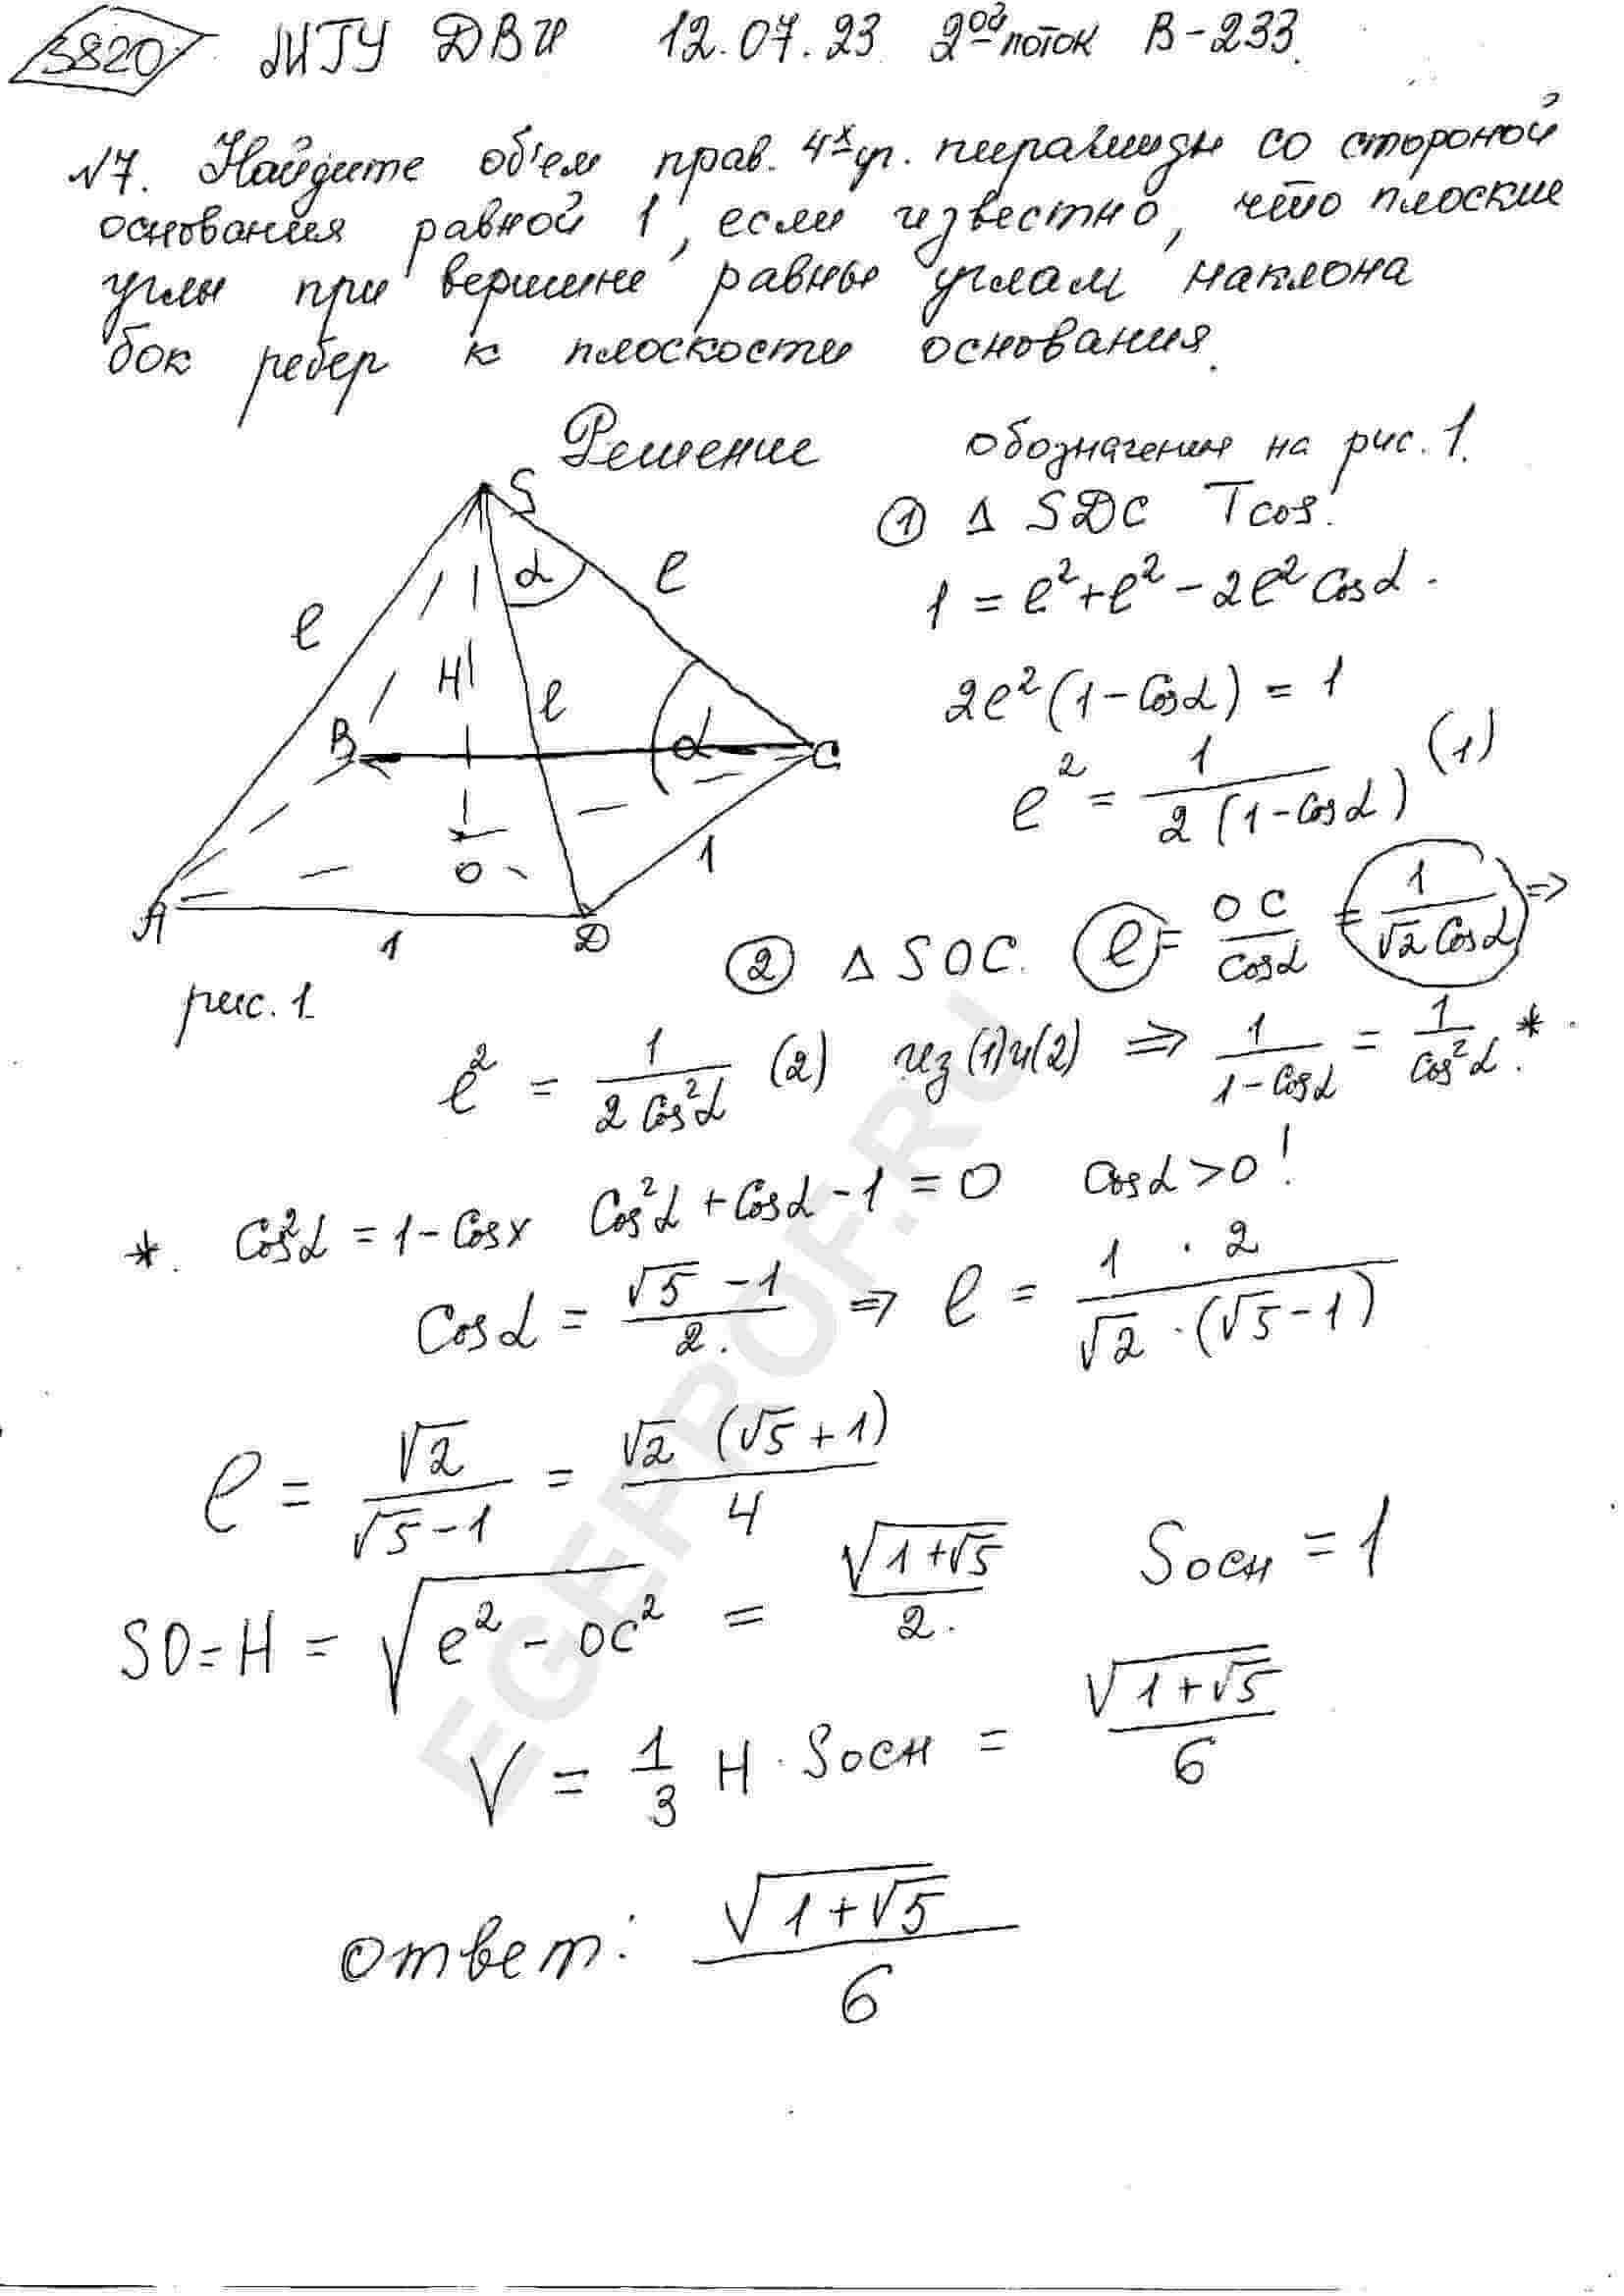 3820 МГУ ДВИ 12.07.23 2ой поток В-233.
№7. Найдите об'ем прав. 4х уг. пирамиды со стороной
основания равной 1, если известно, что плоские
углы при вершине равны углам наклона
бок ребер к плоскости основания.
Решение обозначения на рис. 1.
① Δ SDC Tcos.
1 = ℓ² + ℓ² - 2ℓ² Cosα.
2ℓ² (1 - Cosα) = 1
ℓ² = 1 / 2(1 - Cosα) (1)
S
α
ℓ
ℓ
H
ℓ
B
α
C
O
1
A
1
D
рис. 1
② Δ SOC. ℓ = OC / cosα = 1 / √2 Cosα =>
ℓ² = 1 / 2 Cos²α (2) из (1) и (2) => 1 / 1 - Cosα = 1 / Cos²α. *
*. Cos²α = 1 - Cosx Cos²α + Cosα - 1 = 0 Cosα > 0!
Cosα = √5 - 1 / 2. => ℓ = 1 · 2 / √2 · (√5 - 1)
ℓ = √2 / √5 - 1 = √2 (√5 + 1) / 4
SO = H = √(ℓ² - OC²) = √(1 + √5) / 2. Sосн = 1
V = 1/3 H · Sосн = √(1 + √5) / 6
ответ: √(1 + √5) / 6
EGEPROF.RU